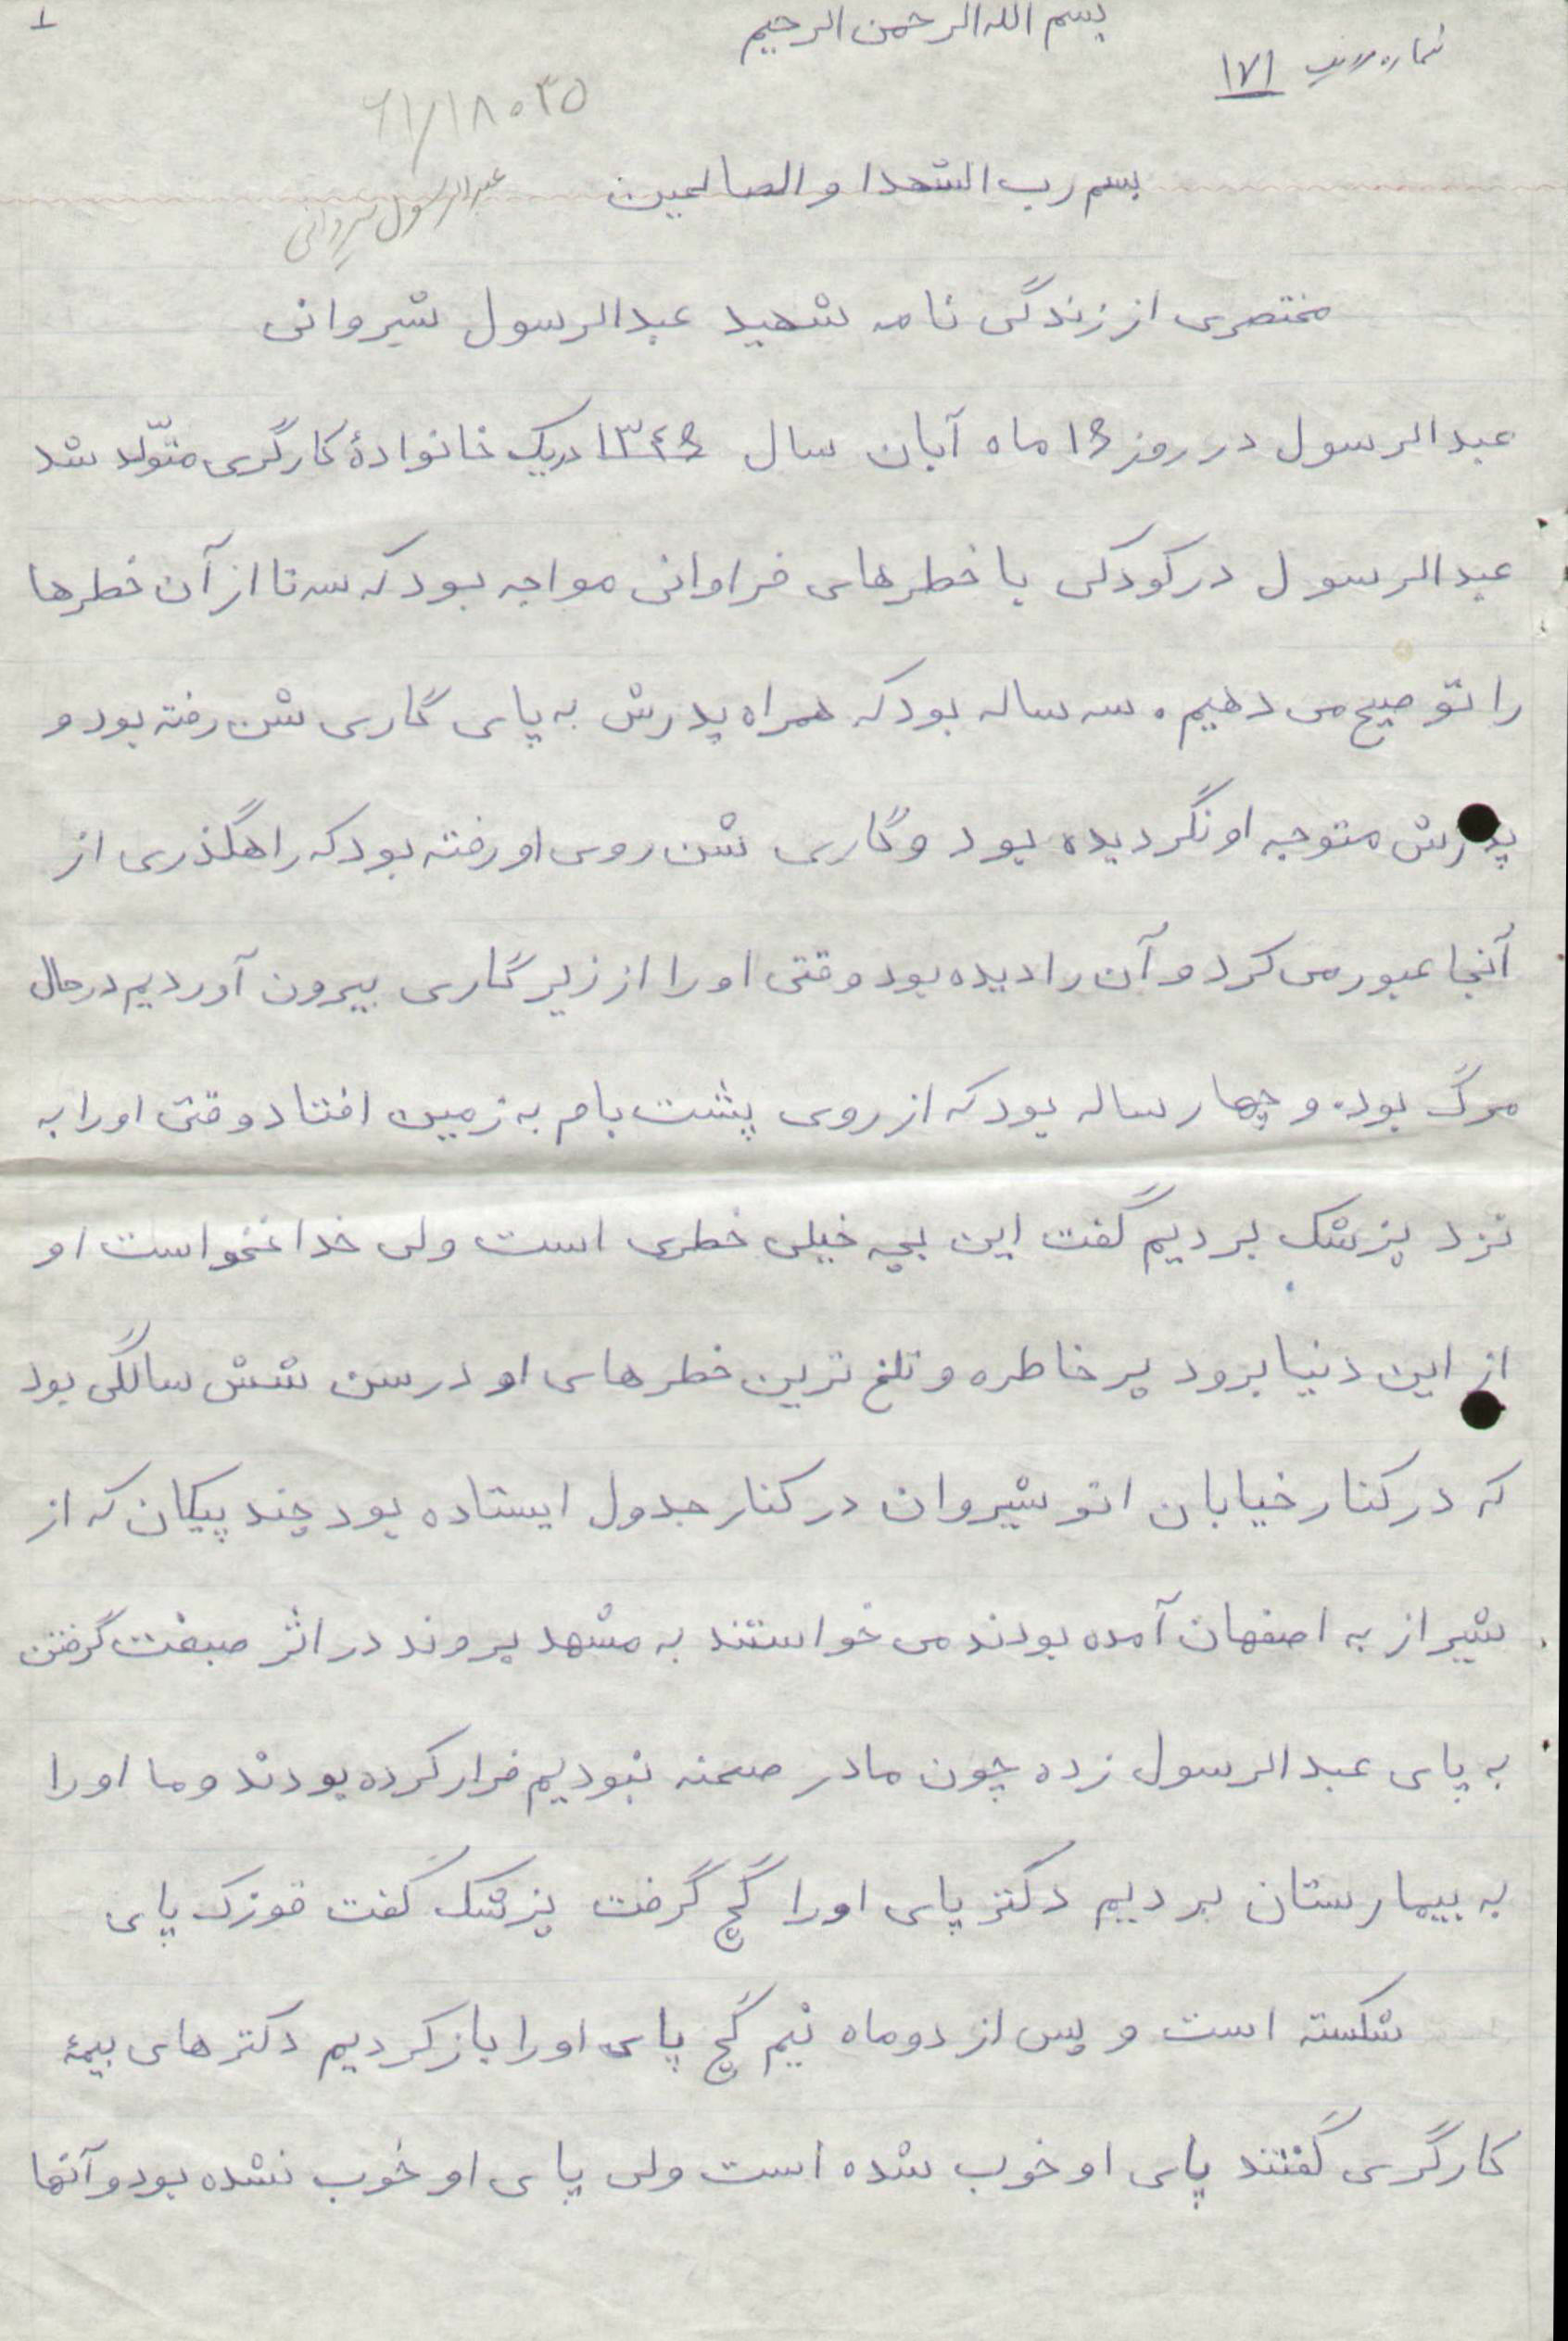 ۱
بسم الله الرحمن الرحیم
شماره ردیف ۱۷۱
۶۱/۱۸۰۳۵
بسم رب الشهدا و الصالحین
عبدالرسول شیروانی
مختصری از زندگی نامه شهید عبدالرسول شیروانی
عبدالرسول در روز ۱۶ ماه آبان سال ۱۳۴۶ دریک خانوادهٔ کارگری متوّلد شد
عبدالرسول در کودکی با خطرهای فراوانی مواجه بود که سه تا از آن خطرها
را توضیح می دهیم. سه ساله بود که همراه پدرش به پای گاری شن رفته بود و
پدرش متوجه او نگردیده بود و گاری شن روی او رفته بود که راهگذری از
آنجا عبور می کرد و آن را دیده بود وقتی او را از زیر گاری بیرون آوردیم در حال
مرگ بوده و چهار ساله بود که از روی پشت بام به زمین افتاد وقتی او را به
نزد پزشک بردیم گفت این بچه خیلی خطری است ولی خدا نخواست او
از این دنیا برود پر خاطره و تلخ ترین خطرهای او در سن شش سالگی بود
که در کنار خیابان انوشیروان در کنار جدول ایستاده بود چند پیکان که از
شیراز به اصفهان آمده بودند می خواستند به مشهد بروند در اثر صبقت گرفتن
به پای عبدالرسول زده چون ما در صحنه نبودیم فرار کرده بودند و ما او را
به بیمارستان بردیم دکتر پای او را گچ گرفت پزشک گفت قوزک پای
شکسته است و پس از دو ماه نیم گچ پای او را باز کردیم دکترهای بیمهٔ
کارگری گفتند پای او خوب شده است ولی پای او خوب نشده بود و آنها